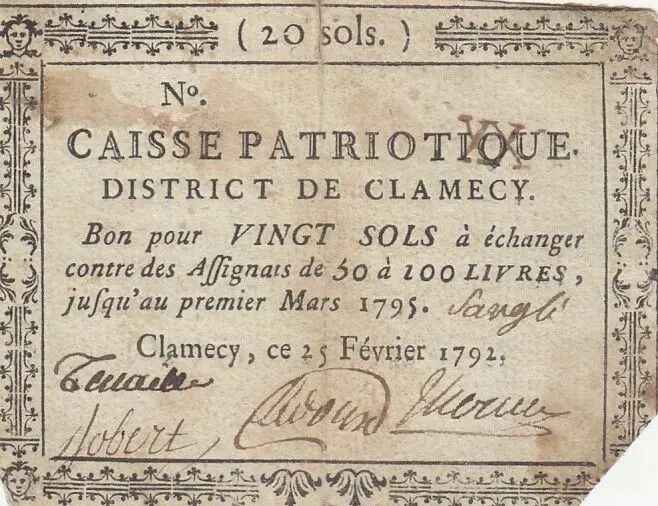 ( 20 sols. )
Nº.
CAISSE PATRIOTIQUE.
XX
DISTRICT DE CLAMECY.
Bon pour VINGT SOLS à échanger
contre des Aſſignats de 50 à 100 LIVRES,
juſqu'au premier Mars 1795.
Clamecy, ce 25 Février 1792.
Robert